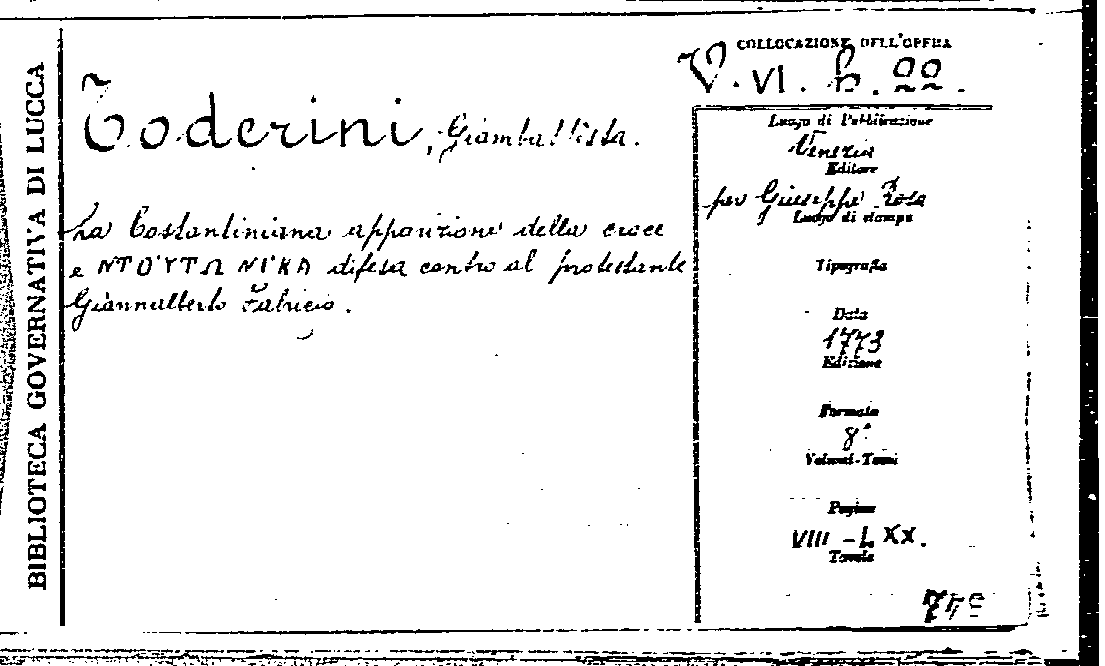 BIBLIOTECA GOVERNATIVA DI LUCCA
COLLOCAZIONE DELL'OPERA
V. VI. b. 22.
Toderini, Giambattista.
La Costantiniana apparizione della croce
e NTOYTΩ NIKA difesa contro al protestante
Giannalberto Fabricio.
Luogo di Pubblicazione
Venezia
Editore
per Giuseppe Rosa
Luogo di stampa
Tipografia
Data
1773
Edizione
Formato
8°
Volumi-Tomi
Pagine
VIII - LXX.
Tavole